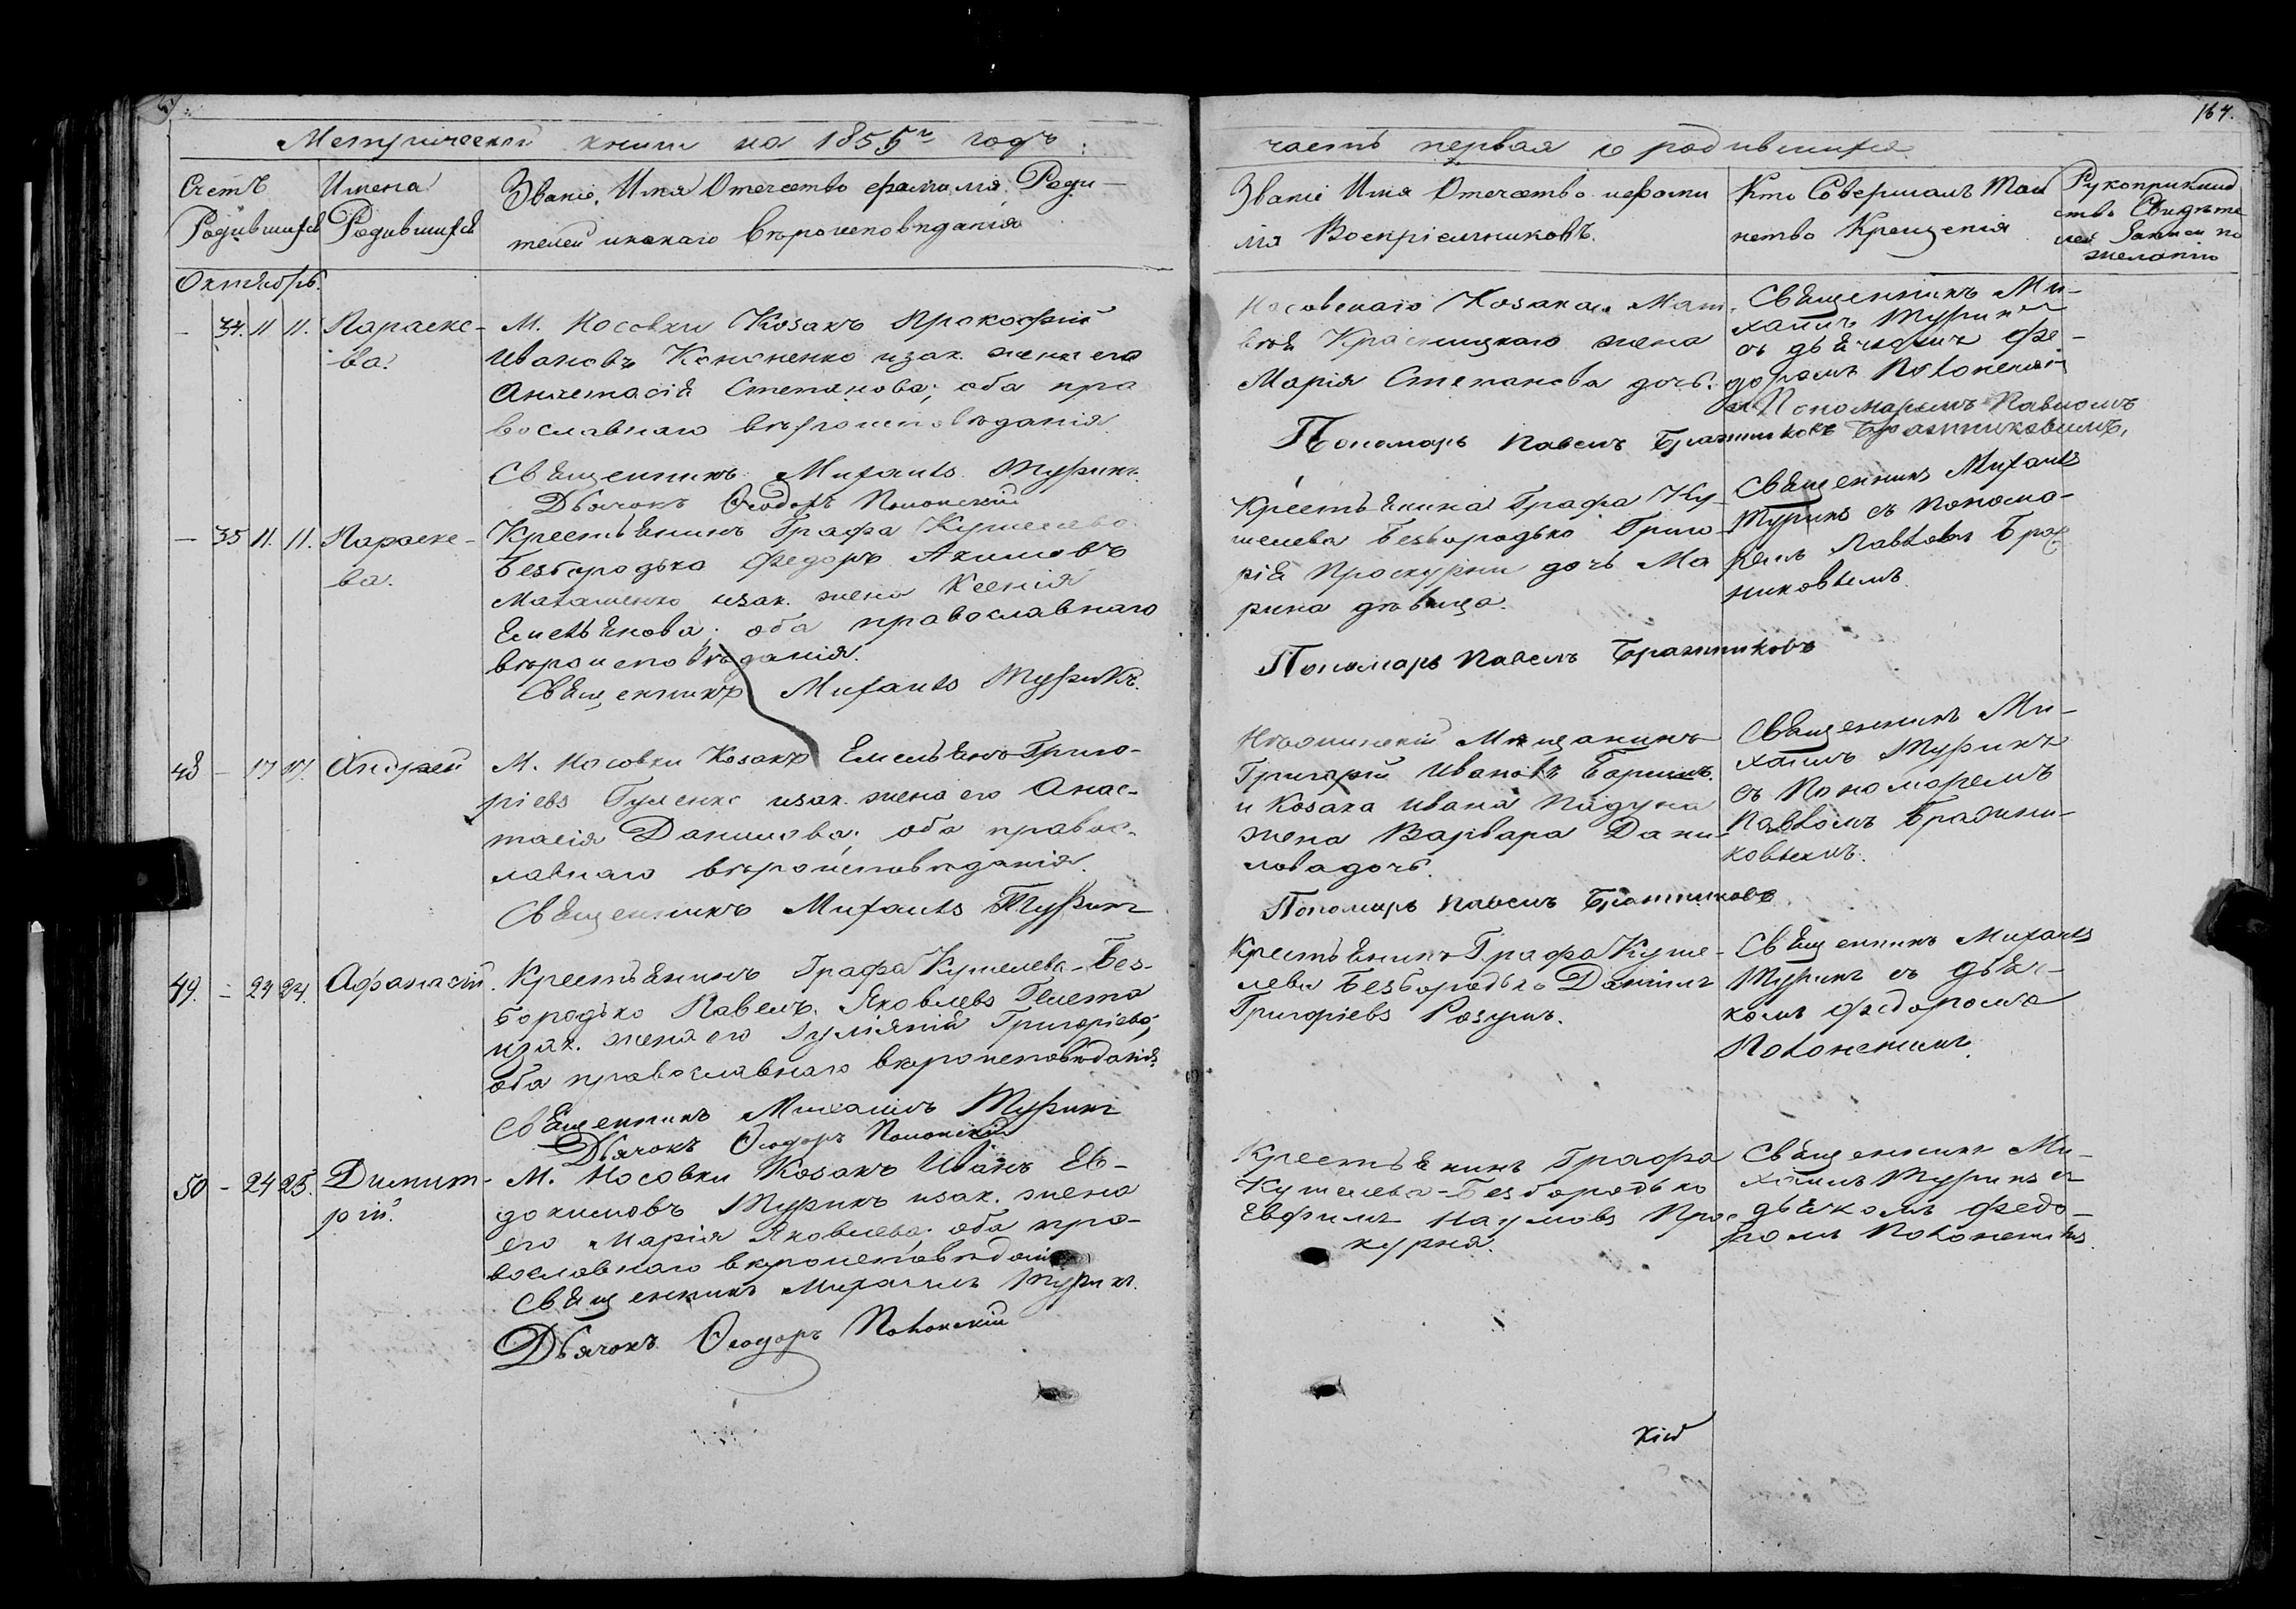 164.
Метрической книги на 1855й годъ
часть первая о родившихся
Счетъ
Родившихся
Имена
Родившихся
Званіе, Имя Отечество фамилія Роди-
телей и какаго вѣроисповѣданія
Званіе Имя Отечество и фами
лія Воспріемниковъ.
Кто Совершалъ Таи
нство Крещенія
Рукоприклад
ство Свидѣте
лей Записи по
желанію
Октябрь.
— 34. 11 11. Параске-
ва.
М. Носовки Козакъ Прокофій
Ивановъ Кононенко и зак. жена его
Анастасія Степанова; оба пра
вославнаго вѣроисповѣданія
Священникъ Михаилъ Турикъ.
Дьячокъ Ѳеодоръ Полонскій
Носовскаго Козака Мат
вѣя Красницкаго жена
Марія Степанова дочь.
Пономарь Павелъ Бражниковъ
Священникъ Ми-
хаилъ Турикъ
съ дьячкомъ Фе-
доромъ Полонским
и Пономаремъ Павломъ
Бражниковымъ,
— 35 11. 11. Параске-
ва.
Крестьянинъ Графа Кушелева
Безбородька Федоръ Акимовъ
Маташенко и зак. жена Ксенія
Емельянова; оба православнаго
вѣроисповѣданія.
Священникъ Михаилъ Турикъ.
Крестьянина Графа Ку-
шелева Безбородько Григо-
рія Проскурни дочь Ма
рина дѣвица.
Пономарь Павелъ Бражниковъ
Священникъ Михаилъ
Турикъ съ Понома-
ремъ Павломъ Браж
никовымъ.
48 — 17 17. Андрей
М. Носовки Козакъ Емельянъ Григо-
ріевъ Гуменко и зак. жена его Анас-
тасія Данилова; оба правос-
лавнаго вѣроисповѣданія.
Священникъ Михаилъ Турикъ
Мѣщанинъ
Григорій Ивановъ
и Козака Ивана Падуна
жена Варвара Дани-
лова дочь.
Пономарь Павелъ Бражниковъ
Священникъ Ми-
хаилъ Турикъ
съ Пономаремъ
Павломъ Бражни-
ковымъ.
49. — 24 24. Афанасій.
Крестьянинъ Графа Кушелева-Без-
бородько Павелъ Яковлевъ Гелета
и зак. жена его Іуліянія Григоріева;
оба православнаго вѣроисповѣданія.
Священникъ Михаилъ Турикъ
Дьячокъ Ѳеодоръ Полонскій
Крестьянинъ Графа Куше-
лева Безбородько Даніилъ
Григоріевъ Розумъ.
Священникъ Михаилъ
Турикъ съ дьяч-
комъ Федоромъ
Полонскимъ.
50 — 24 25. Димит-
рій.
М. Носовки Козакъ Иванъ Ев-
докимовъ Турикъ и зак. жена
его Марія Яковлева; оба пра-
вославнаго вѣроисповѣданія
Священникъ Михаилъ Турикъ.
Дьячокъ Ѳеодоръ Полонскій
Крестьянинъ Графа
Кушелева-Безбородько
Евфимъ Наумовъ Прос
курня.
Священникъ Ми-
хаилъ Турикъ съ
дьячкомъ Федо-
ромъ Полонскимъ.